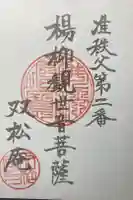 准秩父第二番
楊柳觀世音菩薩
双松庵